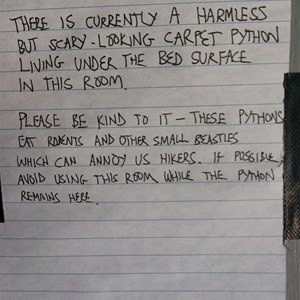 THERE IS CURRENTLY A HARMLESS
BUT SCARY-LOOKING CARPET PYTHON
LIVING UNDER THE BED SURFACE
IN THIS ROOM.
PLEASE BE KIND TO IT – THESE PYTHONS
EAT RODENTS AND OTHER SMALL BEASTIES
WHICH CAN ANNOY US HIKERS. IF POSSIBLE,
AVOID USING THIS ROOM WHILE THE PYTHON
REMAINS HERE.